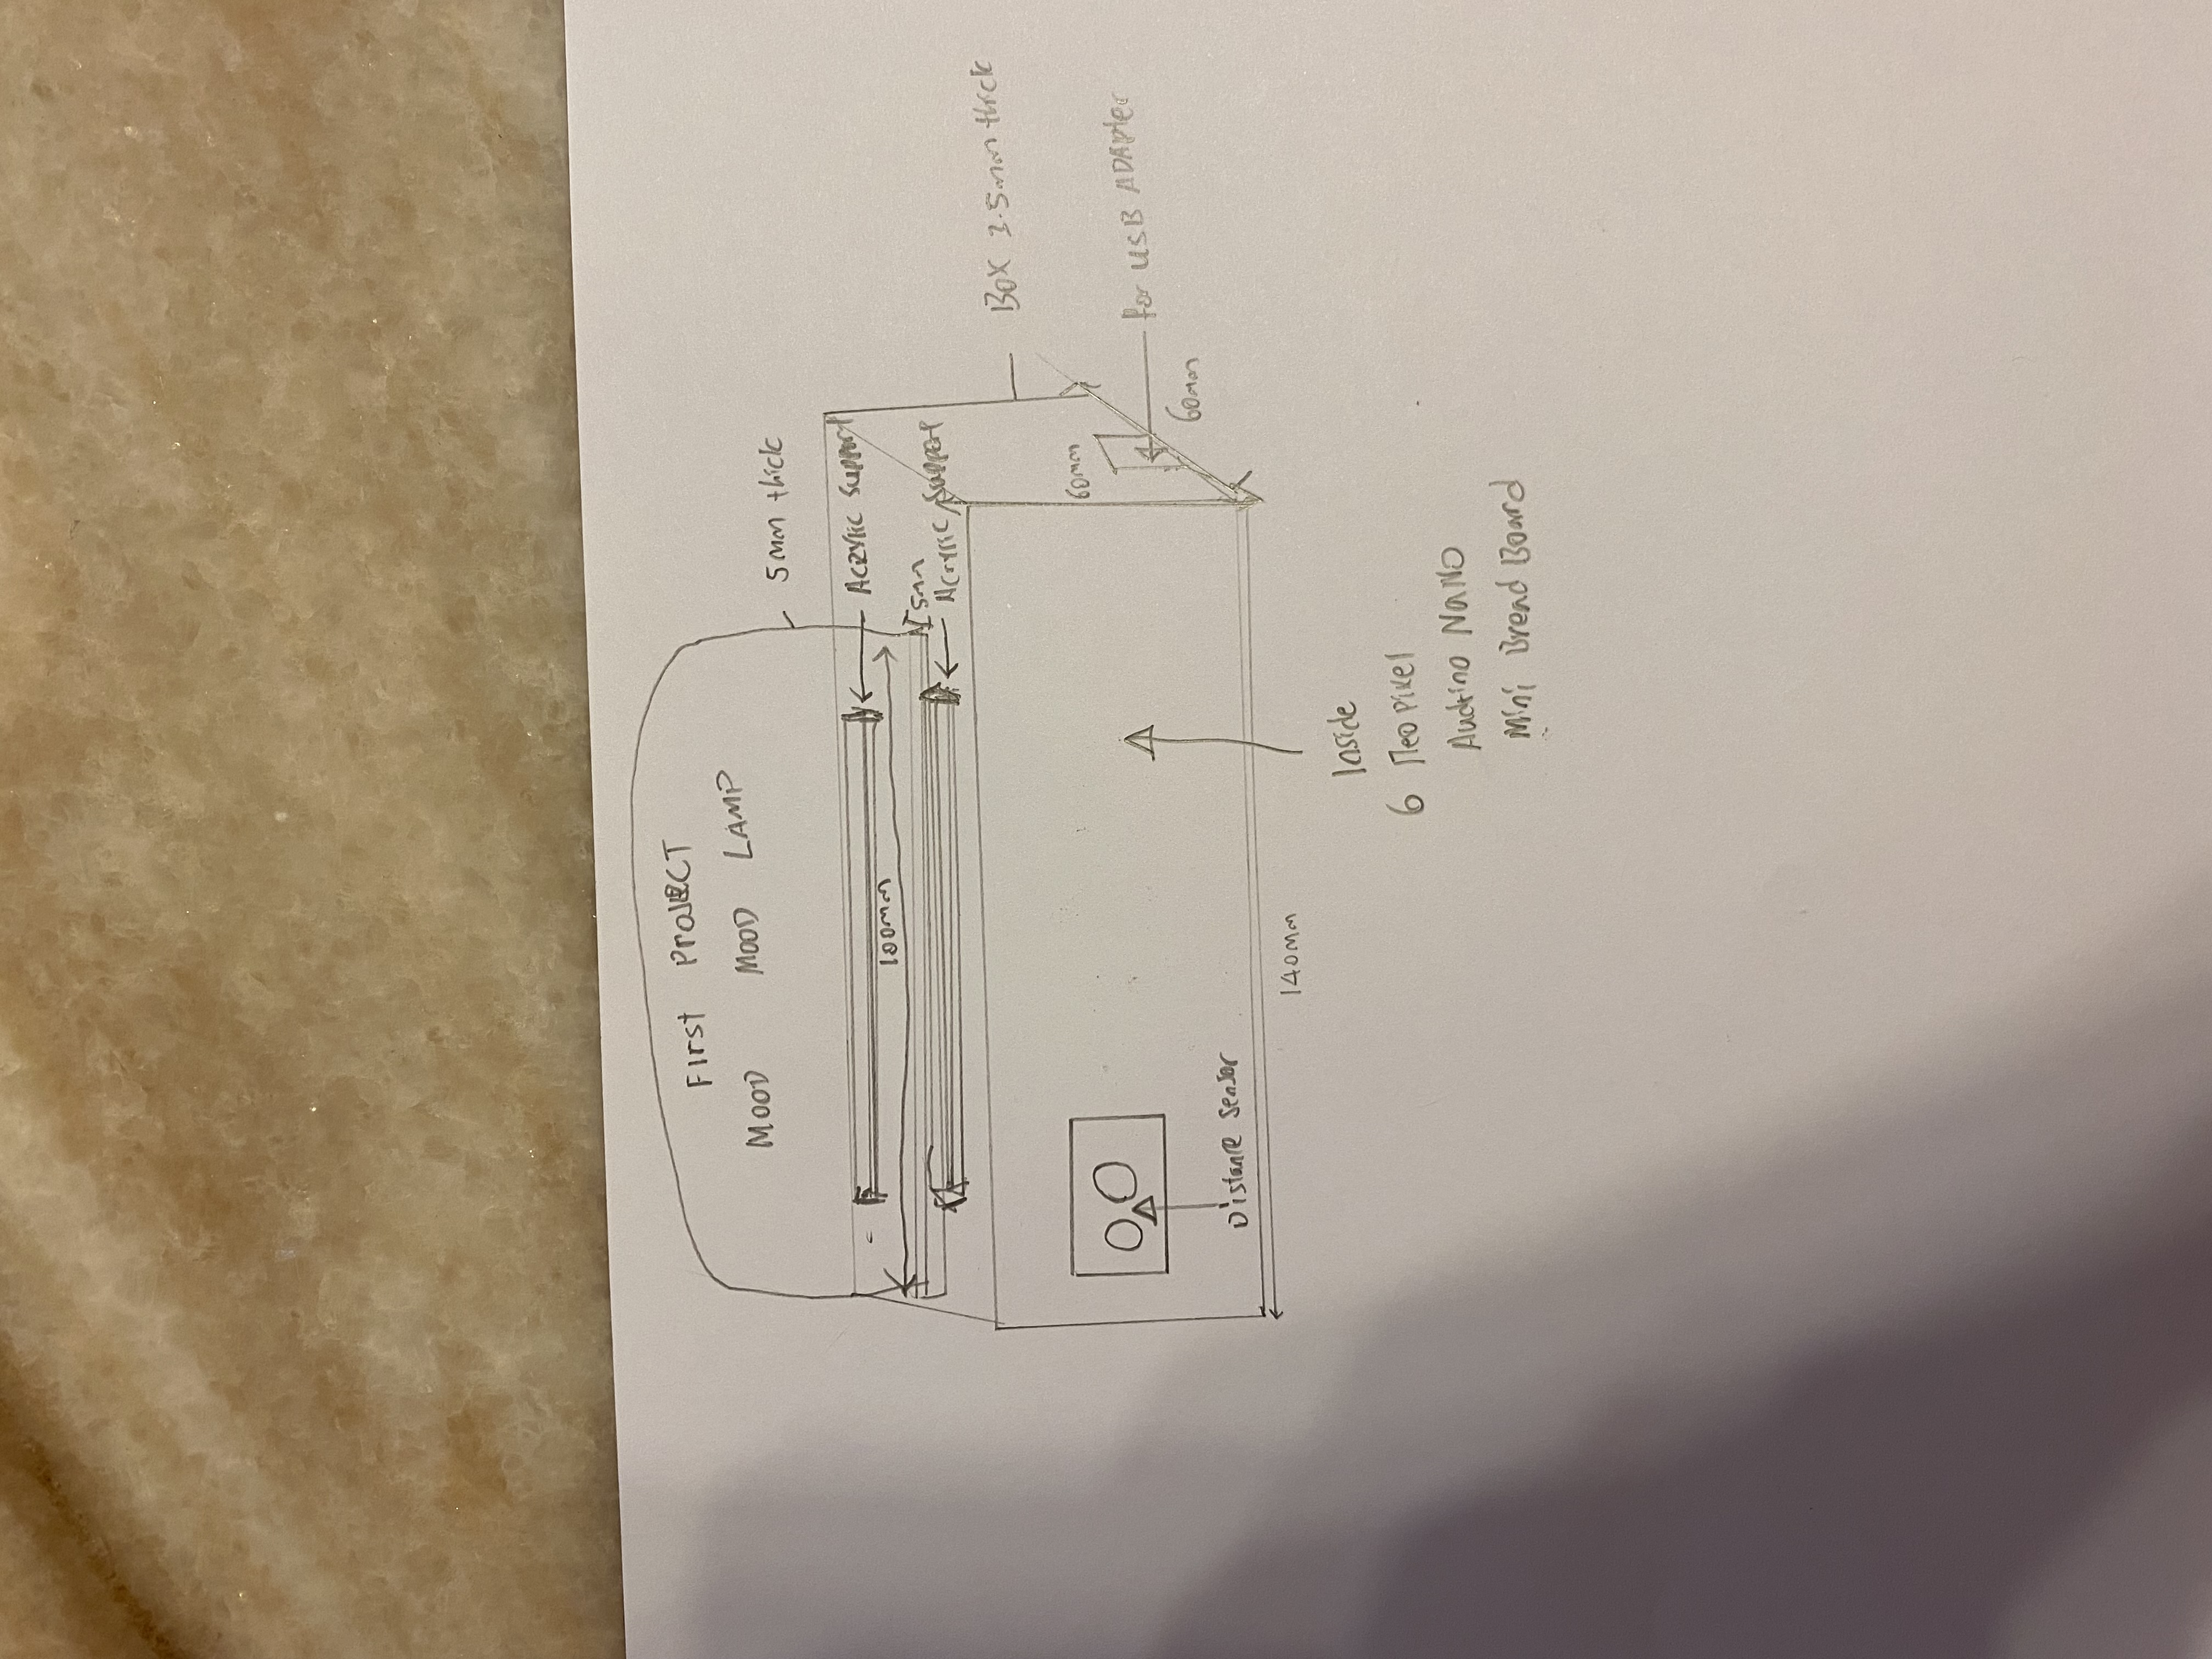 First ProJECT
MOOD MOOD LAMP
5mm thick
Acrylic support
100mm
5mm
Acrylic support
Box 3.5mm thick
60mm
for USB ADApter
60mm
Distance sensor
140mm
Inside
6 Neo pixel
Audrino NaNo
Mini Bread Board